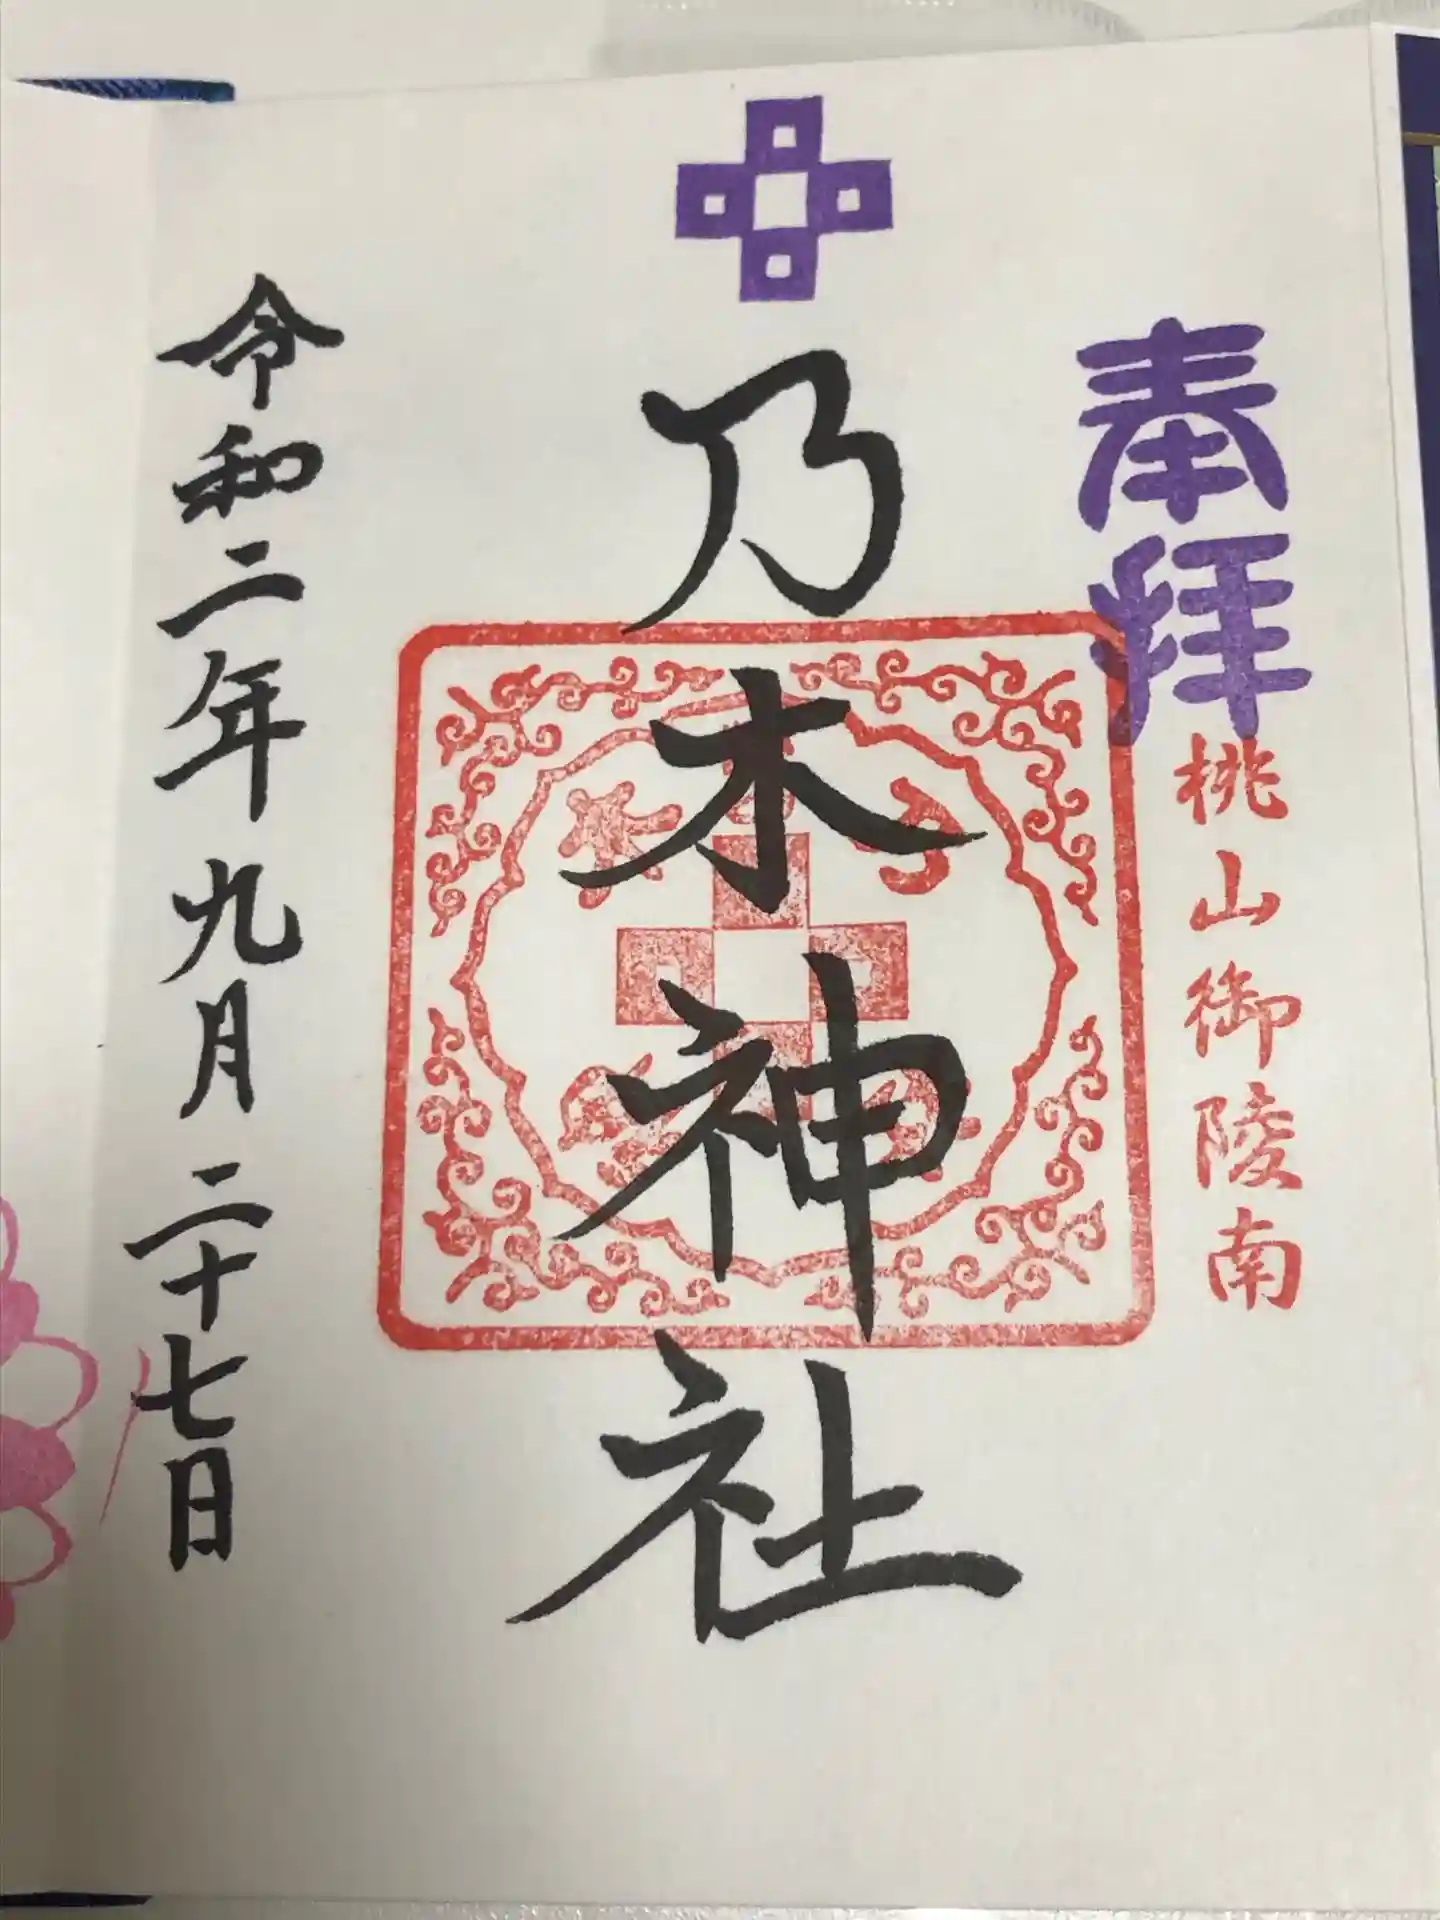 奉拝
桃山御陵南
乃木神社
令和二年九月二十七日